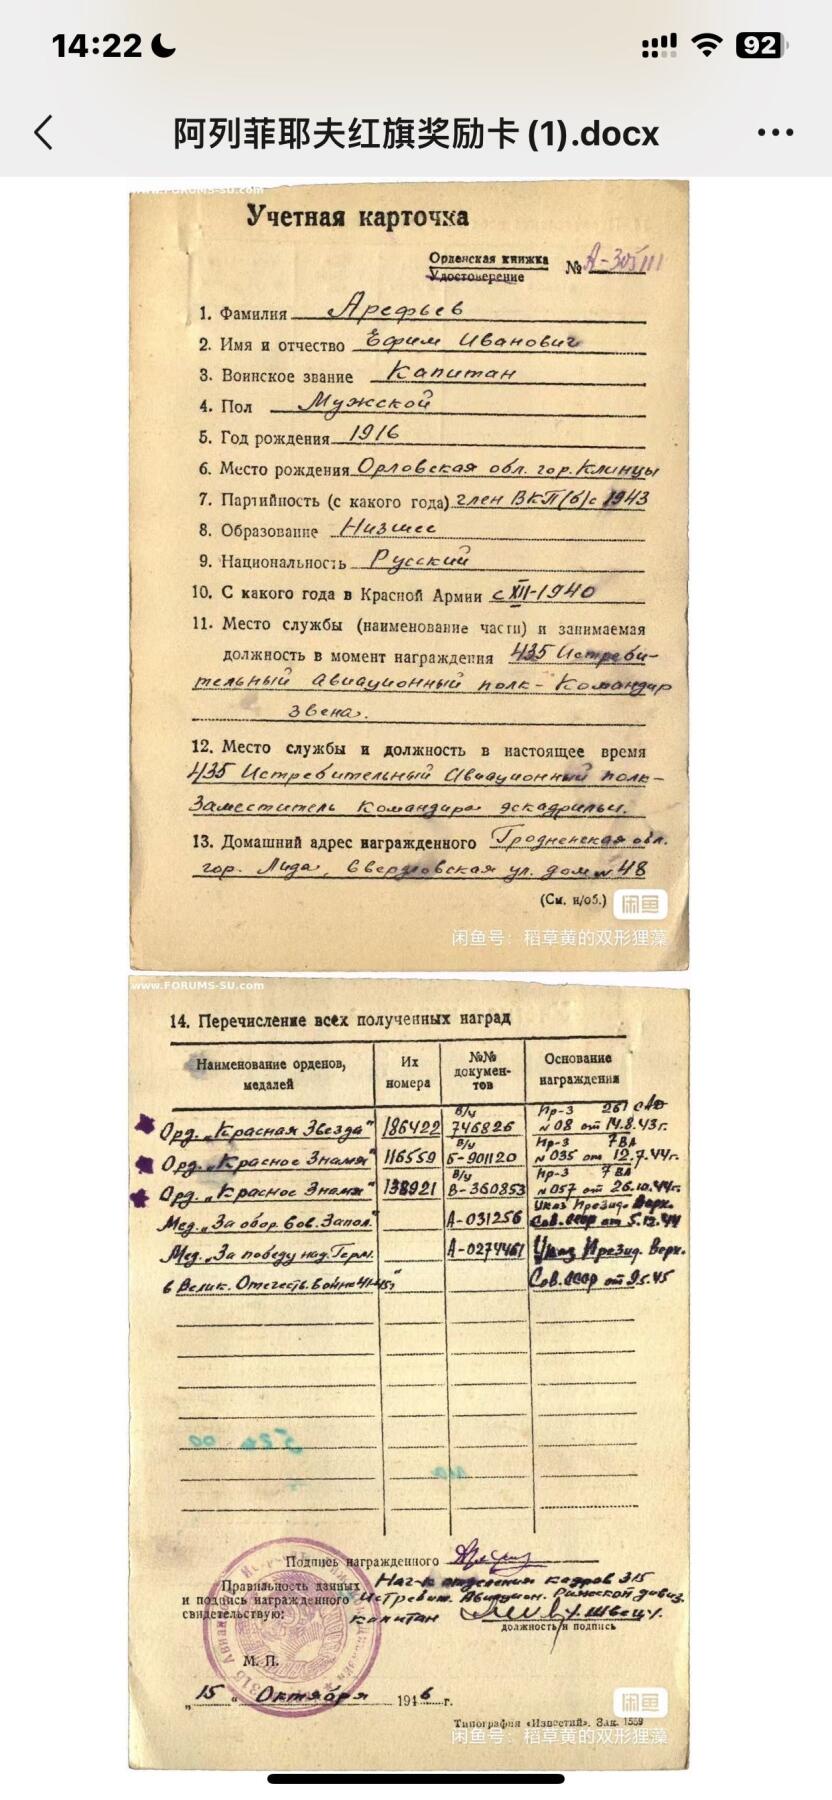 14:22
92
阿列菲耶夫红旗奖励卡(1).docx
www.FORUMS-SU.com
Учетная карточка
Орденская книжка
Удостоверение
№ А-305111
1. Фамилия Арефьев
2. Имя и отчество Ефим Иванович
3. Воинское звание Капитан
4. Пол Мужской
5. Год рождения 1916
6. Место рождения Орловская обл. гор. Клинцы
7. Партийность (с какого года) член ВКП(б) с 1943
8. Образование Низшее
9. Национальность Русский
10. С какого года в Красной Армии с XII-1940
11. Место службы (наименование части) и занимаемая
должность в момент награждения 435 Истреби-
тельный авиационный полк - Командир
звена.
12. Место службы и должность в настоящее время
435 Истребительный Авиационный полк-
Заместитель Командира эскадрильи.
13. Домашний адрес награжденного Гродненская обл.
гор. Лида, Свердловская ул. дом № 48
(См. н/об.)
闲鱼
闲鱼号：稻草黄的双形狸藻
www.FORUMS-SU.com
14. Перечисление всех полученных наград
Наименование орденов, медалей
Их номера
№№ докумен-тов
Основание награждения
Орд. „Красная Звезда" 186422 в/у 746826 Пр-з 261 САД №08 от 14.8.43г.
Орд. „Красное Знамя" 116559 в/у Б-901120 Пр-з 7ВА №035 от 12.7.44г.
Орд. „Красное Знамя" 138921 в/у В-360853 Пр-з 7 ВА №057 от 26.10.44г.
Мед. „За обор. Сов. Запол." А-031256 Указ Презид. Верх. Сов. СССР от 5.12.44
Мед. „За победу над Герм. А-0274461 Указ Презид. Верх.
в Велик. Отечеств. войне 41-45г" Сов. СССР от 9.5.45
Подпись награжденного
Правильность данных
и подпись награжденного
свидетельствую:
Нач-к отделения кадров 315
Истребит. Авиацион. Рижской дивиз.
капитан /Швец/.
должность и подпись
М. П.
„15" Октября 1946 г.
闲鱼
Типография «Известий». Зак. 1559
闲鱼号：稻草黄的双形狸藻